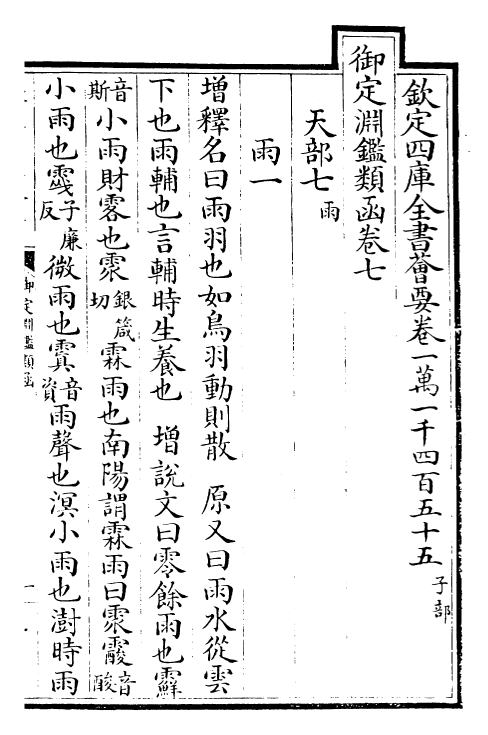 欽定四庫全書薈要卷一萬一千四百五十五 子部
御定淵鑑類函卷七
天部七 雨
雨一
增釋名曰雨羽也如鳥羽動則散 原又曰雨水從雲
下也雨輔也言輔時生養也 增說文曰零餘雨也霹
音斯小雨財零也霂銀箴切霖雨也南陽謂霖雨曰霂霰音酸
小雨也霙子廉反微雨也霣音資雨聲也溟小雨也澍時雨
御定淵鑑類函
一